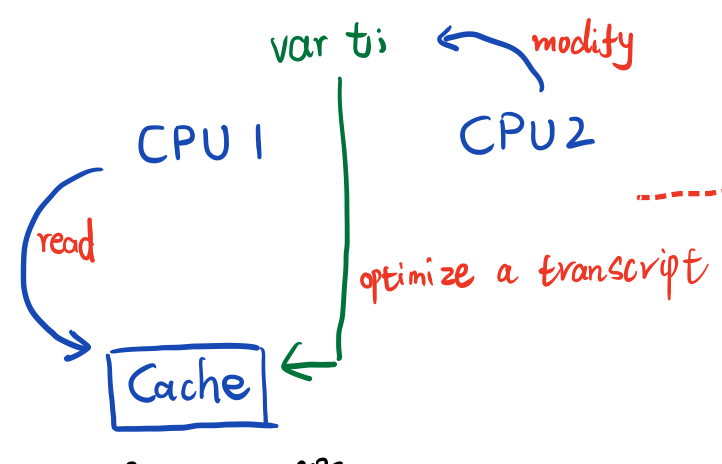 var ti
modify
CPU 1
CPU2
read
optimize a transcript
Cache